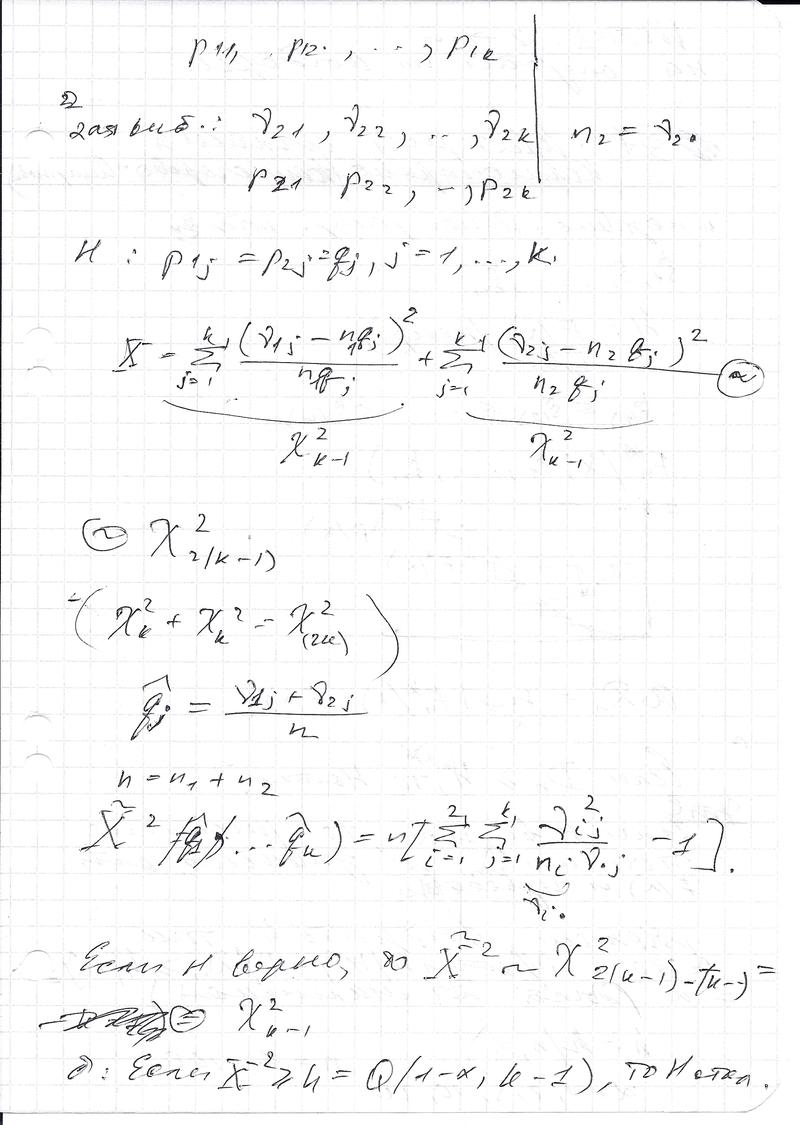 p₁₁, p₁₂, ..., p₁ₖ
2
2ая выб.: ν₂₁, ν₂₂, .., ν₂ₖ | n₂ = ν₂.
p₂₁ p₂₂, –, p₂ₖ
H : p₁ⱼ = p₂ⱼ = qⱼ, j = 1, ..., k.
X = ∑ⱼ₌₁ᵏ (ν₁ⱼ – n₁qⱼ)² / n₁qⱼ + ∑ⱼ₌₁ᵏ (ν₂ⱼ – n₂qⱼ)² / n₂qⱼ ~
χ²ₖ₋₁ χ²ₖ₋₁
~ χ²₂₍ₖ₋₁₎
(χ²ₖ + χ²ₖ = χ²₍₂ₖ₎)
q̂ⱼ = (ν₁ⱼ + ν₂ⱼ) / n
n = n₁ + n₂
X̃² (q̂₁, ... q̂ₖ) = n[∑ᵢ₌₁² ∑ⱼ₌₁ᵏ ν²ᵢⱼ / nᵢ ν.ⱼ – 1].
νᵢ.
Если H верно, то X̃² ~ χ²₂₍ₖ₋₁₎₋₍ₖ₋₁₎ =
= χ²ₖ₋₁
δ: Если X̃² ≥ h = Q(1-α, k-1), то H откл.